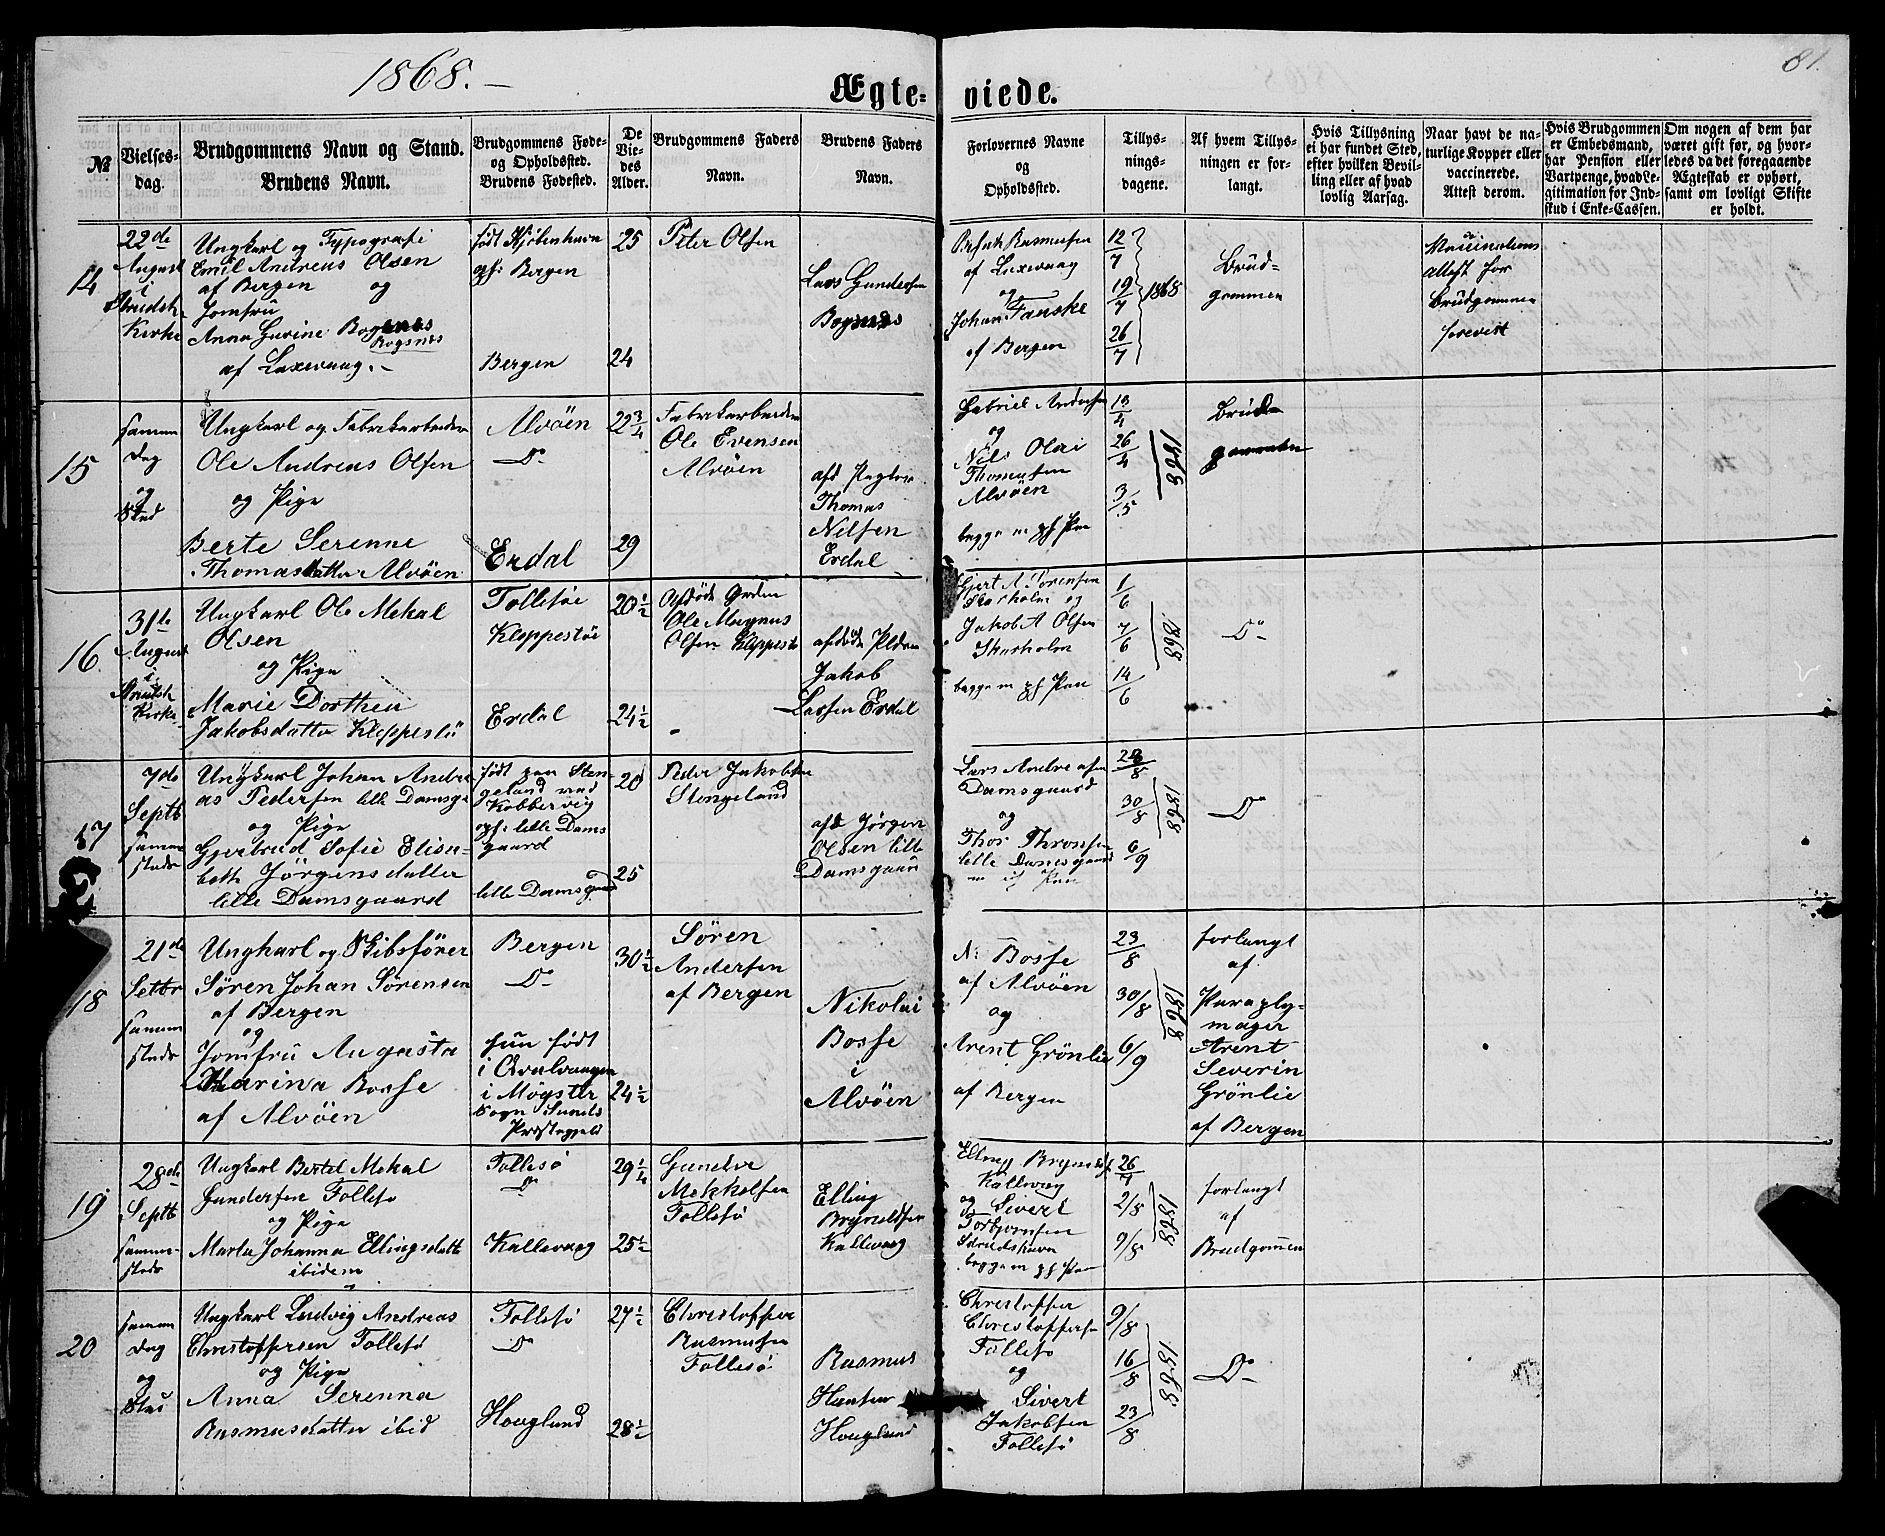 1868.
81.
Ægteviede.
№
Vielsesdag.
Brudgommens Navn og Stand.
Brudens Navn.
Brudgommens Føde-
og Opholdsted.
Brudens Fødested.
De
Vie-
des
Alder.
Brudgommens Faders
Navn.
Brudens Faders
Navn.
Forlovernes Navne
og
Opholdsted.
Tillys-
nings-
dagene.
Af hvem Tillys-
ningen er for-
langt.
Hvis Tillysning
ei har fundet Sted,
efter hvilken Bevil-
ling eller af hvad
lovlig Aarsag.
Naar havt de na-
turlige Kopper eller
vaccinerede.
Attest derom.
Hvis Brudgommen
er Embedsmand,
har Pension eller
Vartpenge, hvad Le-
gitimation for Ind-
skud i Enke-Cassen.
Om nogen af dem har
været gift før, og hvor-
ledes da det foregaaende
Ægteskab er ophørt,
samt om lovligt Skifte
er holdt.
14
22de
August
i
Kirke
Ungkarl og Typografi
Emil Andreas Olsen
af Bergen og
Jomfru
Anna Gurine Bognæs
Rogsnes
af Laxevaag.
født Kjøbenhavn
opf: Bergen
Bergen
25
24
Peter Olsen
Lars Gundersen
Bognæs
Rasmusen
af Laxevaag
og
Johan Fanske
af Bergen
12/7
19/7
26/7
1868
Brud-
gommen
Vaccinations
attest for
Brudgommen
forevist
15
samme
Dag
og
Sted
Ungkarl og Fabrikarbeider
Ole Andreas Olsen
og Pige
Berte Serenne
Thomasdatter Alvöen
Alvöen
Do
Erdal
22 3/4
29
Fabrikarbeider
Ole Evensen
Alvöen
afd
Thomas
Nilsen
Erdal
Gabriel Andersen
og
Nils Olai
Thomasen
Alvöen
begge m
19/4
26/4
3/5
1868
Brud-
gommen
16
31te
August
i
Kirke
Ungkarl Ole Mekal
Olsen
og Pige
Marie Dorthea
Jakobsdatter Kleppestö
Follesöe
Kleppestöe
Erdal
20 1/2
24 1/2
Afdöde
Ole Magnus
Olsen Kleppestö
afdöde
Jakob
Larsen Erdal
Gjert A Sörensen
Storholm og
Jakob A Olsen
Skarholm
begge m
1/6
7/6
14/6
1868
Do
17
7de
Septb
samme
steds
Ungkarl Johan Andre-
as Pedersen lille Damsgd
og Pige
Gjertrud Sofie Elisa-
beth Jörgensdatter
lille Damsgaard
født paa Sten-
geland ved
Kobbervig
opf: lille Dams
gaard
lille Damsgaard
20
25
Peder Jakobsen
Stengeland
afd Jörgen
Olsen lille
Damsgaard
Lars Andreasen
Damsgaard
og
Thor Thronsen
lille Damsgaard
23/8
30/8
6/9
1868
Do
18
21de
Setbr
samme
steds
Ungkarl og Skibsförer
Sören Johan Sörensen
af Bergen
og
Jomfru Augusta
Karina Bosse
af Alvöen
Bergen
Do
hun født
i Qvalvaagen
i Møgster
Sogn Sunds
Præstegjeld
30 1/2
24 1/2
Sören
Andersen
af Bergen
Nikolai
Bosse
i
Alvöen
N: Bosse
af Alvöen
og
Arent Grönlie
af Bergen
23/8
30/8
6/9
1868
forlangt
af
Paraply-
mager
Arent
Severin
Grönlie
af Bergen
19
28de
Septb
samme-
steds
Ungkarl Bertel Mekal
Gundersen Follesö
og Pige
Marta Johanna Ellingsdatter
ibidem
Follesö
Do
Kallevaag
29 1/4
25 1/2
Gunder
Mekkelsen
Follesö
Elling
Brynildsen
Kallevaag
Elling Brynilds
Kallevaag
og Sivert
Torbjörnsen
Strudshavn
begge m
26/7
2/8
9/8
1868
forlangt
af
Brudgommen
20
samme
Dag
og
Sted
Ungkarl Ludvig Andreas
Christoffersen Follesö
og Pige
Anna Serenna
Rasmusdatter ibid
Follesö
Do
Houglund
27 1/2
28 1/2
Christoffer
Rasmusen
Follesö
Rasmus
Hansen
Houglund
Christoffer
Christoffersen
Follesö
og
Sivert
Jakobsen
Follesö
9/8
16/8
23/8
1868
Do